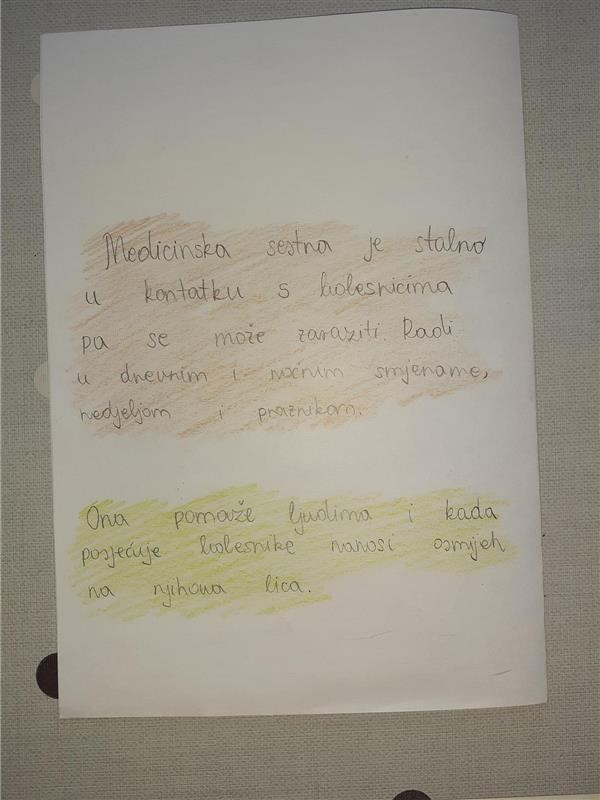 Medicinska sestra je stalno
u kontatku s bolesnicima
pa se može zaraziti. Radi
u dnevnim i noćnim smjename,
nedjeljom i praznikom.
Ona pomaže ljudima i kada
posjećuje bolesnike nanosi osmijeh
na njihova lica.